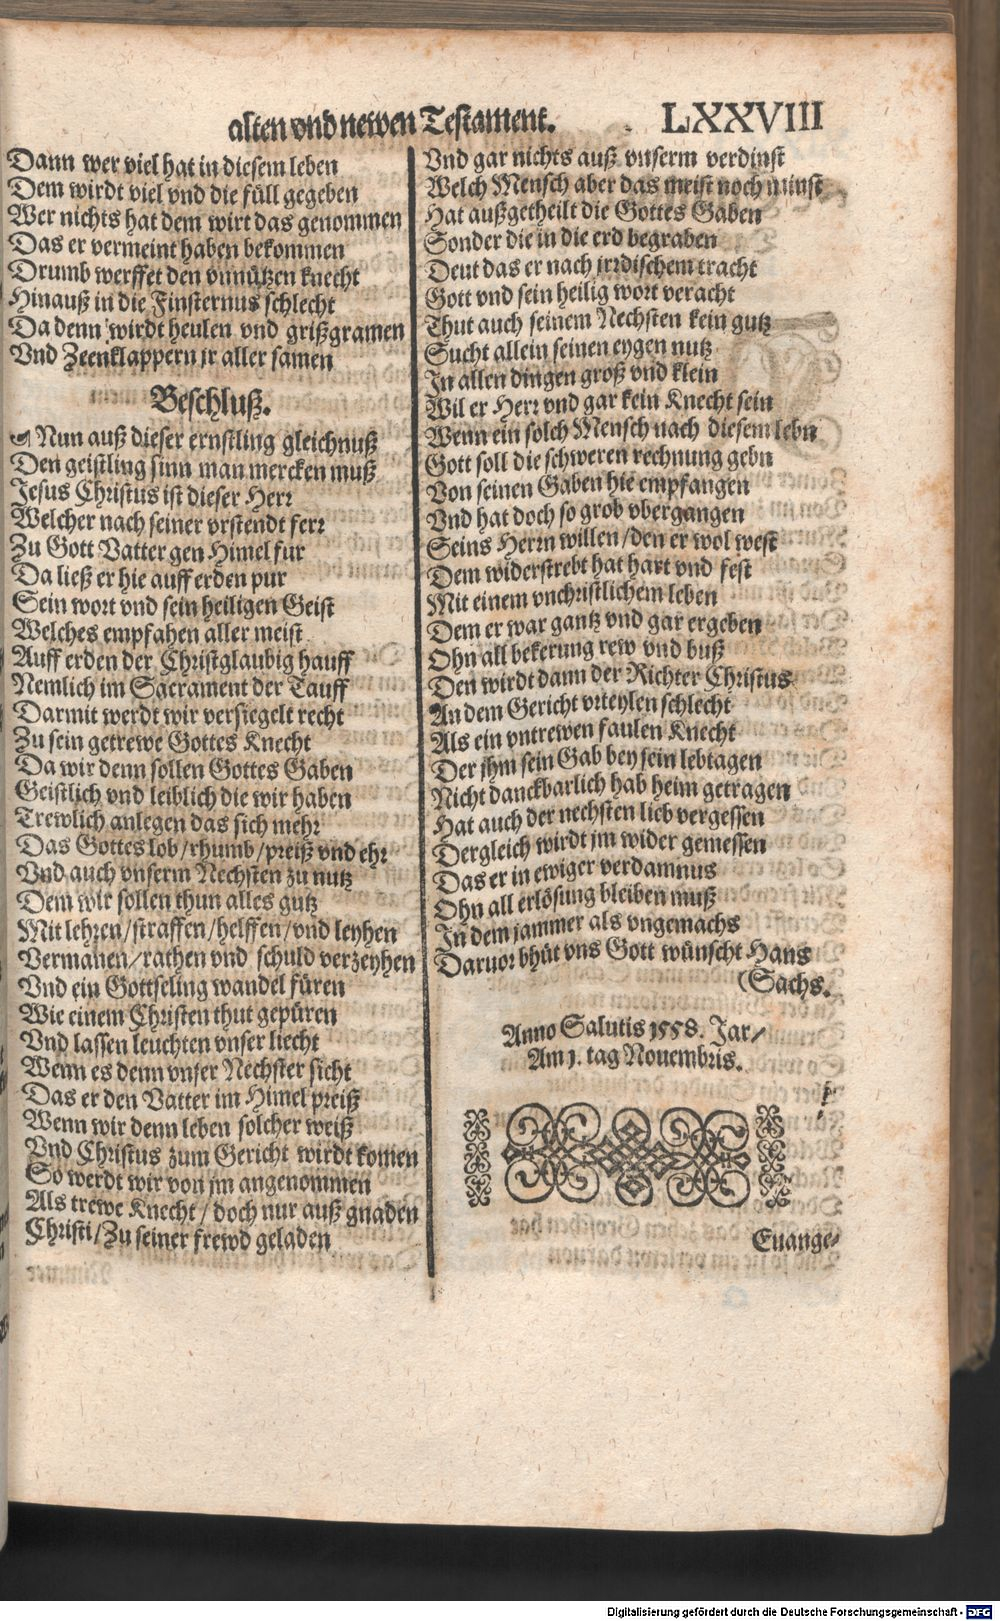 alten vnd newen Testament. LXXVIII
Dann wer viel hat in diesem leben
Dem wirdt viel vnd die füll gegeben
Wer nichts hat dem wirt das genommen
Das er vermeint haben bekommen
Drumb werffet den vnnützen knecht
Hinauß in die Finsternus schlecht
Da denn wirdt heulen vnd grißgramen
Vnd Zeenklappern jr aller samen
Beschluß.
Nun auß dieser ernstling gleichnuß
Den geistling sinn man mercken muß
Jesus Christus ist dieser Herr
Welcher nach seiner vrstendt ferr
Zu Gott Vatter gen Himel fur
Da ließ er hie auff erden pur
Sein wort vnd sein heiligen Geist
Welches empfahen aller meist
Auff erden der Christglaubig hauff
Nemlich im Sacrament der Tauff
Darmit werdt wir versiegelt recht
Zu sein getrewe Gottes Knecht
Da wir denn sollen Gottes Gaben
Geistlich vnd leiblich die wir haben
Trewlich anlegen das sich mehr
Das Gottes lob/rhumb/preiß vnd ehr
Vnd auch vnserm Nechsten zu nutz
Dem wir sollen thun alles gutz
Mit lehren/straffen/helffen/vnd leyhen
Vermanen/rathen vnd schuld verzeyhen
Vnd ein Gottseling wandel füren
Wie einem Christen thut gepüren
Vnd lassen leuchten vnser liecht
Wenn es denn vnser Nechster sicht
Das er den Vatter im Himel preiß
Wenn wir denn leben solcher weiß
Vnd Christus zum Gericht wirdt komen
So werdt wir von jm angenommen
Als trewe Knecht/doch nur auß gnaden
Christi/Zu seiner frewd geladen
Vnd gar nichts auß vnserm verdinst
Welch Mensch aber das meist noch minst
Hat außgetheilt die Gottes Gaben
Sonder die in die erd begraben
Deut das er nach jrrdischem tracht
Gott vnd sein heilig wort veracht
Thut auch seinem Nechsten kein gutz
Sucht allein seinen eygen nutz
In allen dingen groß vnd klein
Wil er Herr vnd gar kein Knecht sein
Wenn ein solch Mensch nach diesem lebn
Gott soll die schweren rechnung gebn
Von seinen Gaben hie empfangen
Vnd hat doch so grob vbergangen
Seins Herrn willen/den er wol west
Dem widerstrebt hat hart vnd fest
Mit einem vnchristlichem leben
Dem er war gantz vnd gar ergeben
Ohn all bekerung rew vnd buß
Den wirdt dann der Richter Christus
An dem Gericht vrteylen schlecht
Als ein vntrewen faulen Knecht
Der jhm sein Gab bey sein lebtagen
Nicht danckbarlich hab heim getragen
Hat auch der nechsten lieb vergessen
Dergleich wirdt jm wider gemessen
Das er in ewiger verdamnus
Ohn all erlösung bleiben muß
In dem jammer als vngemachs
Daruor bhüt vns Gott wünscht Hans
(Sachs.
Anno Salutis 1558. Jar/
Am 1. tag Nouembris.
Euange-
Digitalisierung gefördert durch die Deutsche Forschungsgemeinschaft - DFG